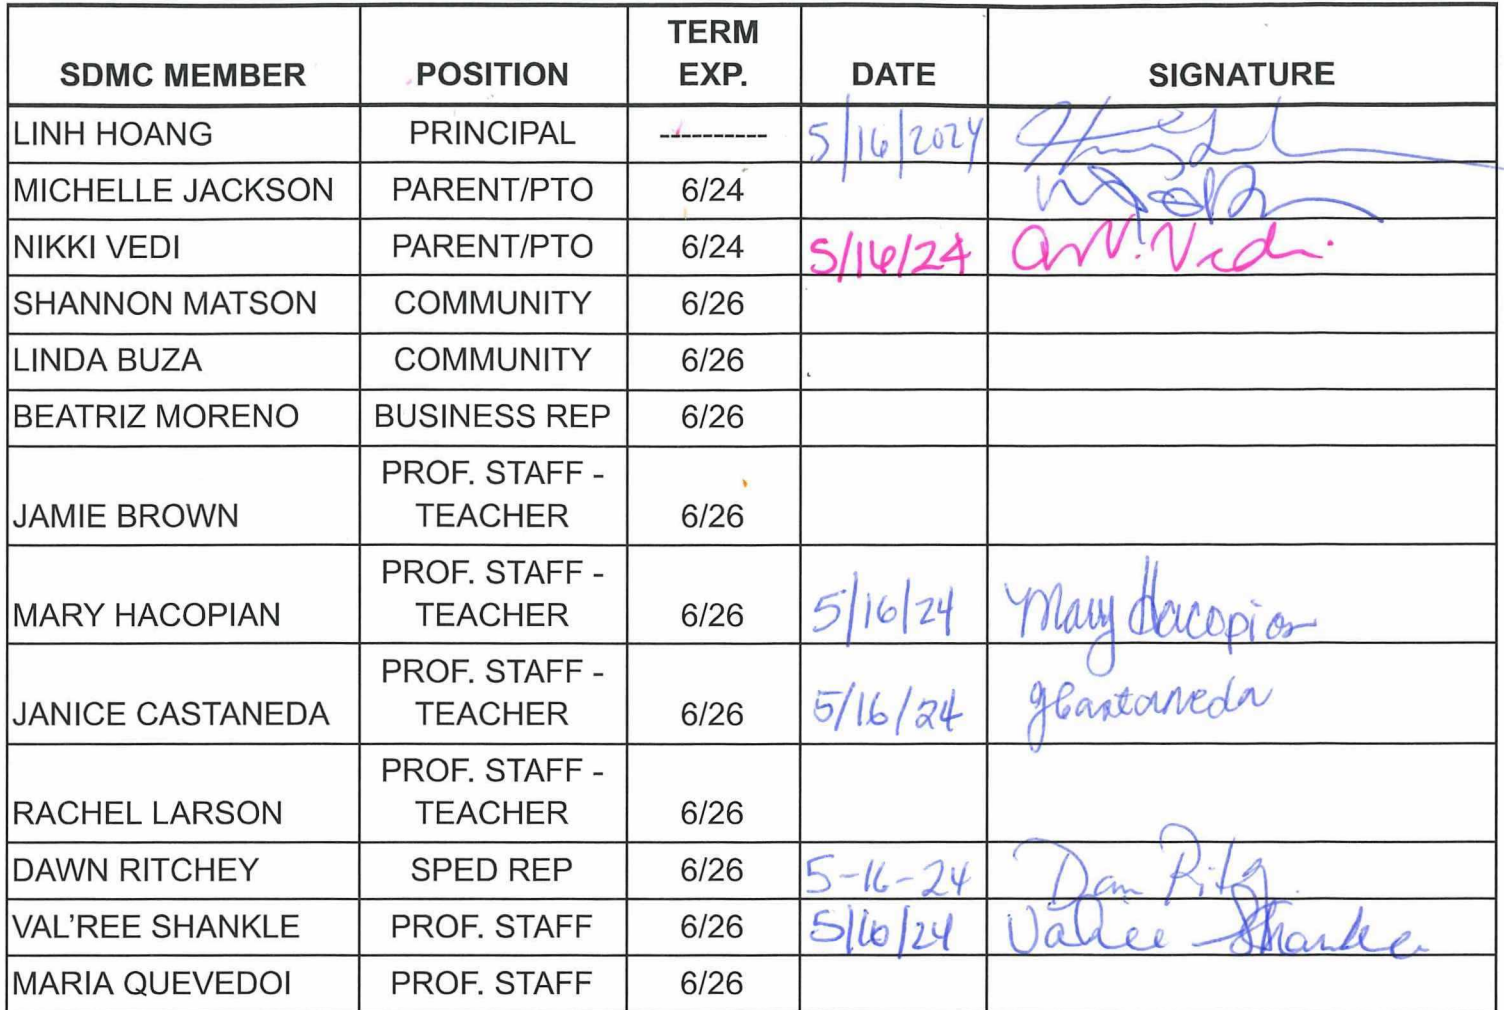 SDMC MEMBER POSITION TERM EXP. DATE SIGNATURE
LINH HOANG PRINCIPAL ---------- 5/16/2024
MICHELLE JACKSON PARENT/PTO 6/24
NIKKI VEDI PARENT/PTO 6/24 5/16/24 N. Vedi
SHANNON MATSON COMMUNITY 6/26
LINDA BUZA COMMUNITY 6/26
BEATRIZ MORENO BUSINESS REP 6/26
JAMIE BROWN PROF. STAFF - TEACHER 6/26
MARY HACOPIAN PROF. STAFF - TEACHER 6/26 5/16/24 Mary Hacopian
JANICE CASTANEDA PROF. STAFF - TEACHER 6/26 5/16/24 JCastaneda
RACHEL LARSON PROF. STAFF - TEACHER 6/26
DAWN RITCHEY SPED REP 6/26 5-16-24
VAL'REE SHANKLE PROF. STAFF 6/26 5/16/24 Valree Shankle
MARIA QUEVEDOI PROF. STAFF 6/26